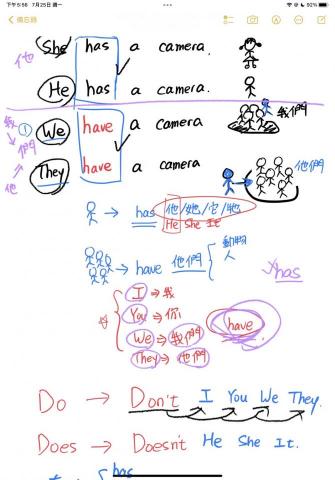 下午5:56 7月25日 週一 92%
備忘錄
She has a camera.
他
He has a camera.
我 ① We have a camera 我們
們
They have a camera 他們
他
→ has 他/她/它/牠
He She It
→ have 他們 動物
人
has
I ⇒ 我
You ⇒ 你
We ⇒ 我們 have
They ⇒ 他們
Do → Don't I You We They.
Does → Doesn't He She It.
has